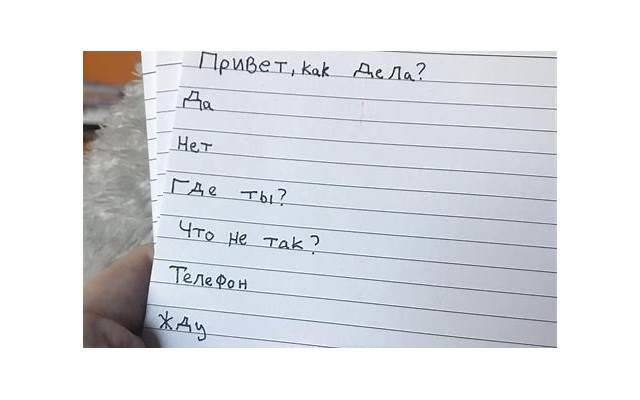 Привет, как дела?
Да
Нет
Где ты?
Что не так?
Телефон
Жду